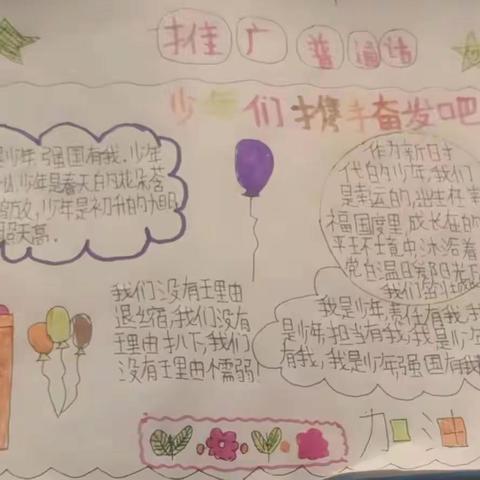 推广普通话
少年们携手奋发吧
少年,强国有我.少年
少年是春天的花朵含
放,少年是初升的旭日
天高.
作为新时
代的少年,我们
是幸运的,出生在幸
福国度里,成长在的
平王不土竟中,沐浴着
党的温日爱阳光
我们
我们没有王里由
退缩,我们没有
王里由扒下,我们
没有王里由懦弱!
我是少年,责任有我,我
是少年,担当有我,我是少年
有我,我是少年,强国有我
加油